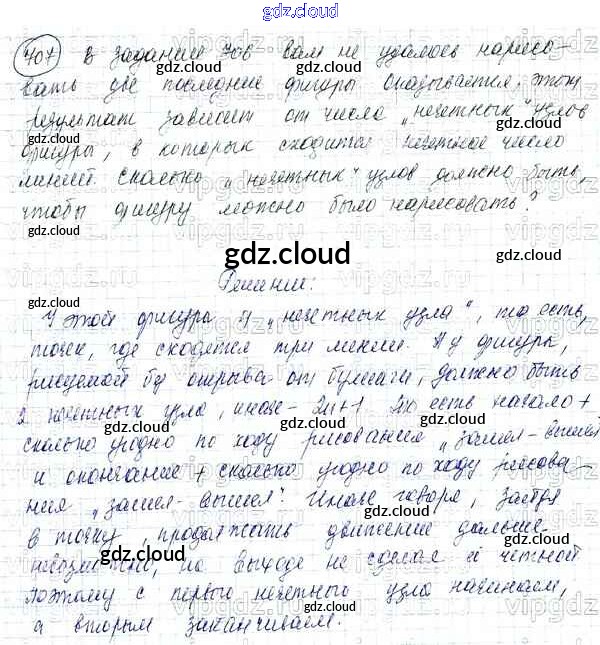 gdz.cloud
407 В задании 706 вам не удалось нарисо-
вать две последние фигуры Оказывается, этот
результат зависит от числа „нечетных" узлов
фигуры, в которых сходится нечетное число
линией. Сколько „нечетных" узлов должно быть,
чтобы фигуру можно было нарисовать?
Решение:
У этой фигуры 4 „нечетных узла", то есть,
точек, где сходятся три линии. А у фигуры,
рисуемой без отрыва от бумаги, должно быть
2 нечетных узла, иначе - 2n+1. То есть начало +
сколько угодно по ходу рисования „зашел-вышел"
и окончание + сколько угодно по ходу рисова-
ния „зашел-вышел". Иначе говоря, зайдя
в точку, продолжать движение дальше
невозможно, но выходе не сделав её четной
поэтому с первого нечетного узла начинаем,
а вторым заканчиваем.
gdz.cloud